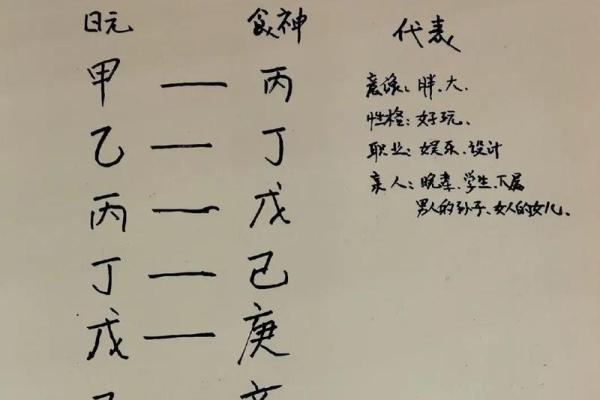 日元 食神 代表
甲 — 丙
乙 — 丁
丙 — 戊
丁 — 己
戊 — 庚
意象：胖、大.
性格：好玩、
职业：娱乐、设计
亲人：晚辈、学生、下属
男人的孙子、女人的女儿、